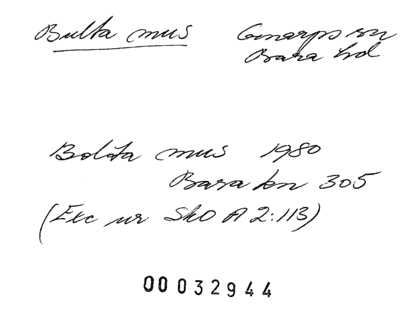 Bulta mus Genarps sn
Bara hd
Bolta mus 1980
Bara kn 305
(Exc ur SkO A 2:113)
00032944